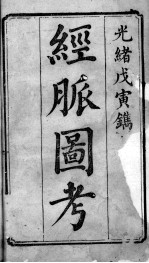 光緒戊寅鐫
經脈圖考